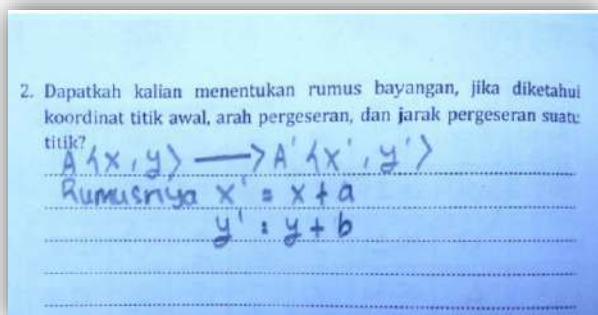 2. Dapatkah kalian menentukan rumus bayangan, jika diketahui
koordinat titik awal, arah pergeseran, dan jarak pergeseran suatu
titik?
A <x, y> —> A' <x', y'>
Rumusnya x' = x + a
y' = y + b